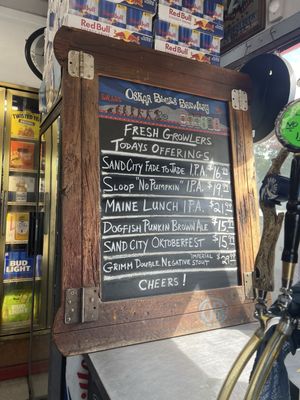 Red Bull
Red Bull
Red Bull
Red Bull
TWISTED TEA
Oskar Blues Brewery
Fresh Growlers
Todays Offerings
Sand City Fade to Jade I.P.A. $16
Sloop No Pumpkin I.P.A. $19
Maine Lunch I.P.A. $21
Dogfish Punkin Brown Ale $15
Sand City Oktoberfest $15
Grimm Double Negative Imperial Stout
Cheers!
BUD
LIGHT